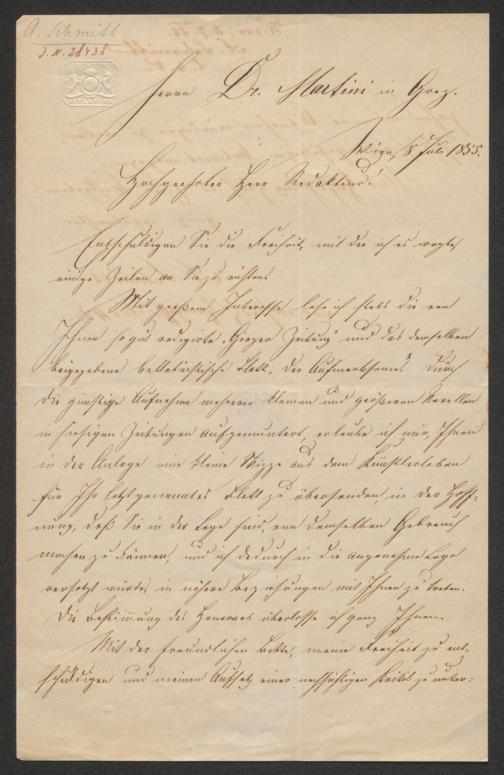 A. Schmitt
J.N. 28438
Herrn Dr. Martini in Graz.
Wien, 8 Juli 1855.
Hochgeehrter Herr Redakteur!
Entschuldigen Sie die Freiheit, mit der ich es wage,
einige Zeilen an Sie zu richten.
Mit großem Interesse lese ich stets die von
Ihnen so gut redigirte „Grazer Zeitung“ und das demselben
beigegebene belletristische Blatt. „Der Aufmerksame“. Durch
die günstige Aufnahme mehrerer kleinen und größeren Novellen
in hiesigen Zeitungen aufgemuntert, erlaube ich mir, Ihnen
in der Anlage eine kleine Skizze aus dem Künstlerleben
für Ihr letztgenanntes Blatt zu übersenden, in der Hoff-
nung, daß Sie in der Lage sind, von demselben Gebrauch
machen zu können, und ich dadurch in die angenehme Lage
versetzt würde, in nähere Beziehungen mit Ihnen zu treten.
Die Bestimmung des Honorars überlasse ich ganz Ihnen.
Mit der freundlichen Bitte, meine Freiheit zu ent-
schuldigen und meinen Aufsatz einer nachsichtigen Kritik zu unter-